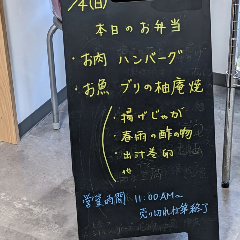 /4(日)
本日のお弁当
・お肉 ハンバーグ
・お魚 ブリの柚庵焼
・揚げじゃが
・春雨の酢の物
・出汁巻卵
他
営業時間 11:00AM〜
売り切れ次第終了